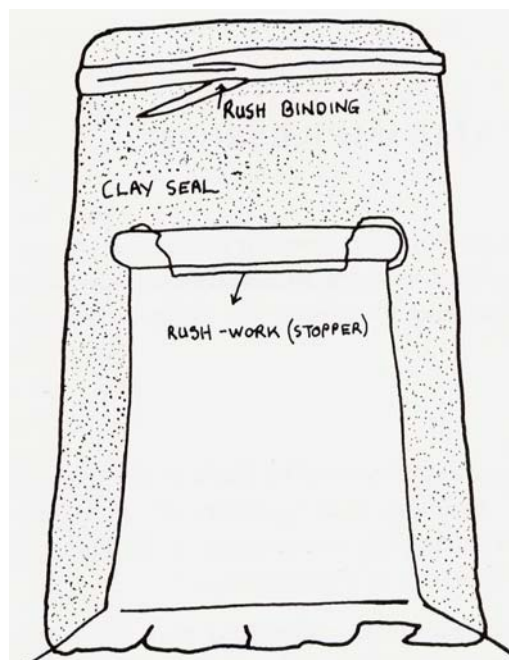 RUSH BINDING
CLAY SEAL
RUSH-WORK (STOPPER)